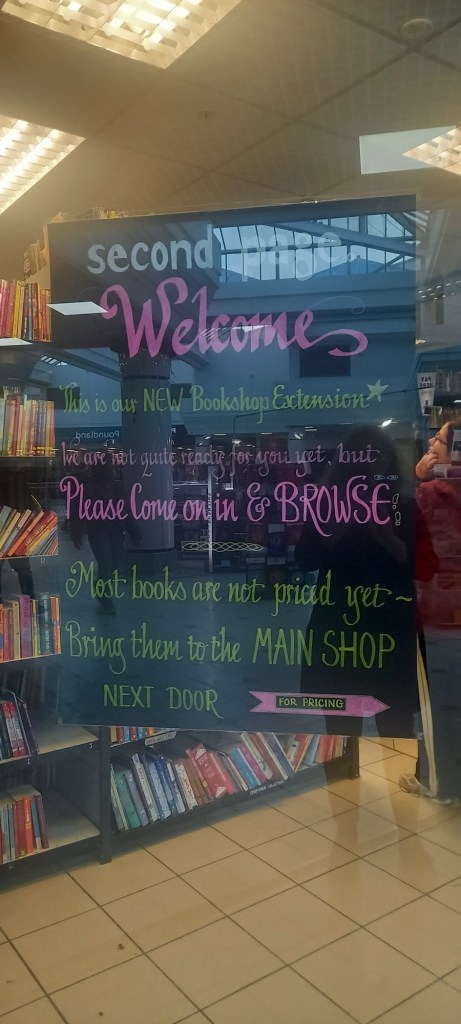 second page.
Welcome
This is our NEW Bookshop Extension
We are not quite ready for you yet, but
Please Come on in & BROWSE
Most books are not priced yet ~
Bring them to the MAIN SHOP
NEXT DOOR
FOR PRICING
Poundland